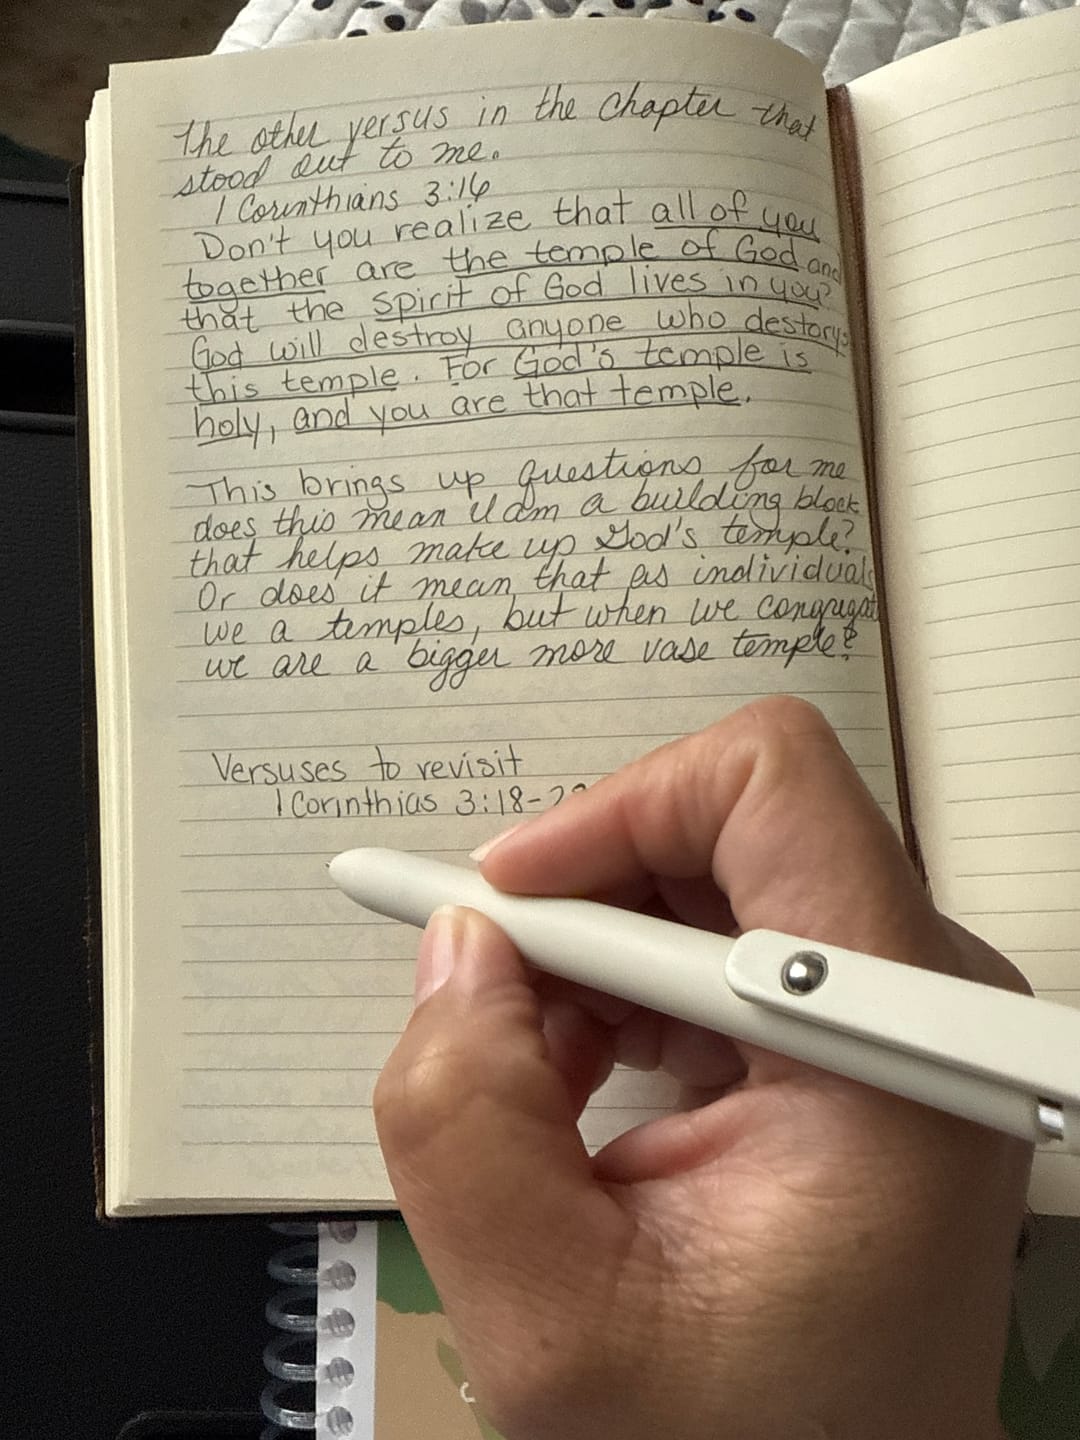 The other versus in the chapter that
stood out to me.
1 Corinthians 3:16
Don't you realize that all of you
together are the temple of God and
that the spirit of God lives in you?
God will destroy anyone who destorys
this temple. For God's temple is
holy, and you are that temple.
This brings up questions for me
does this mean I am a building block
that helps make up God's temple?
Or does it mean that as individuals
we a temples, but when we congregat
we are a bigger more vase temple?
Versuses to revisit
1 Corinthias 3:18-